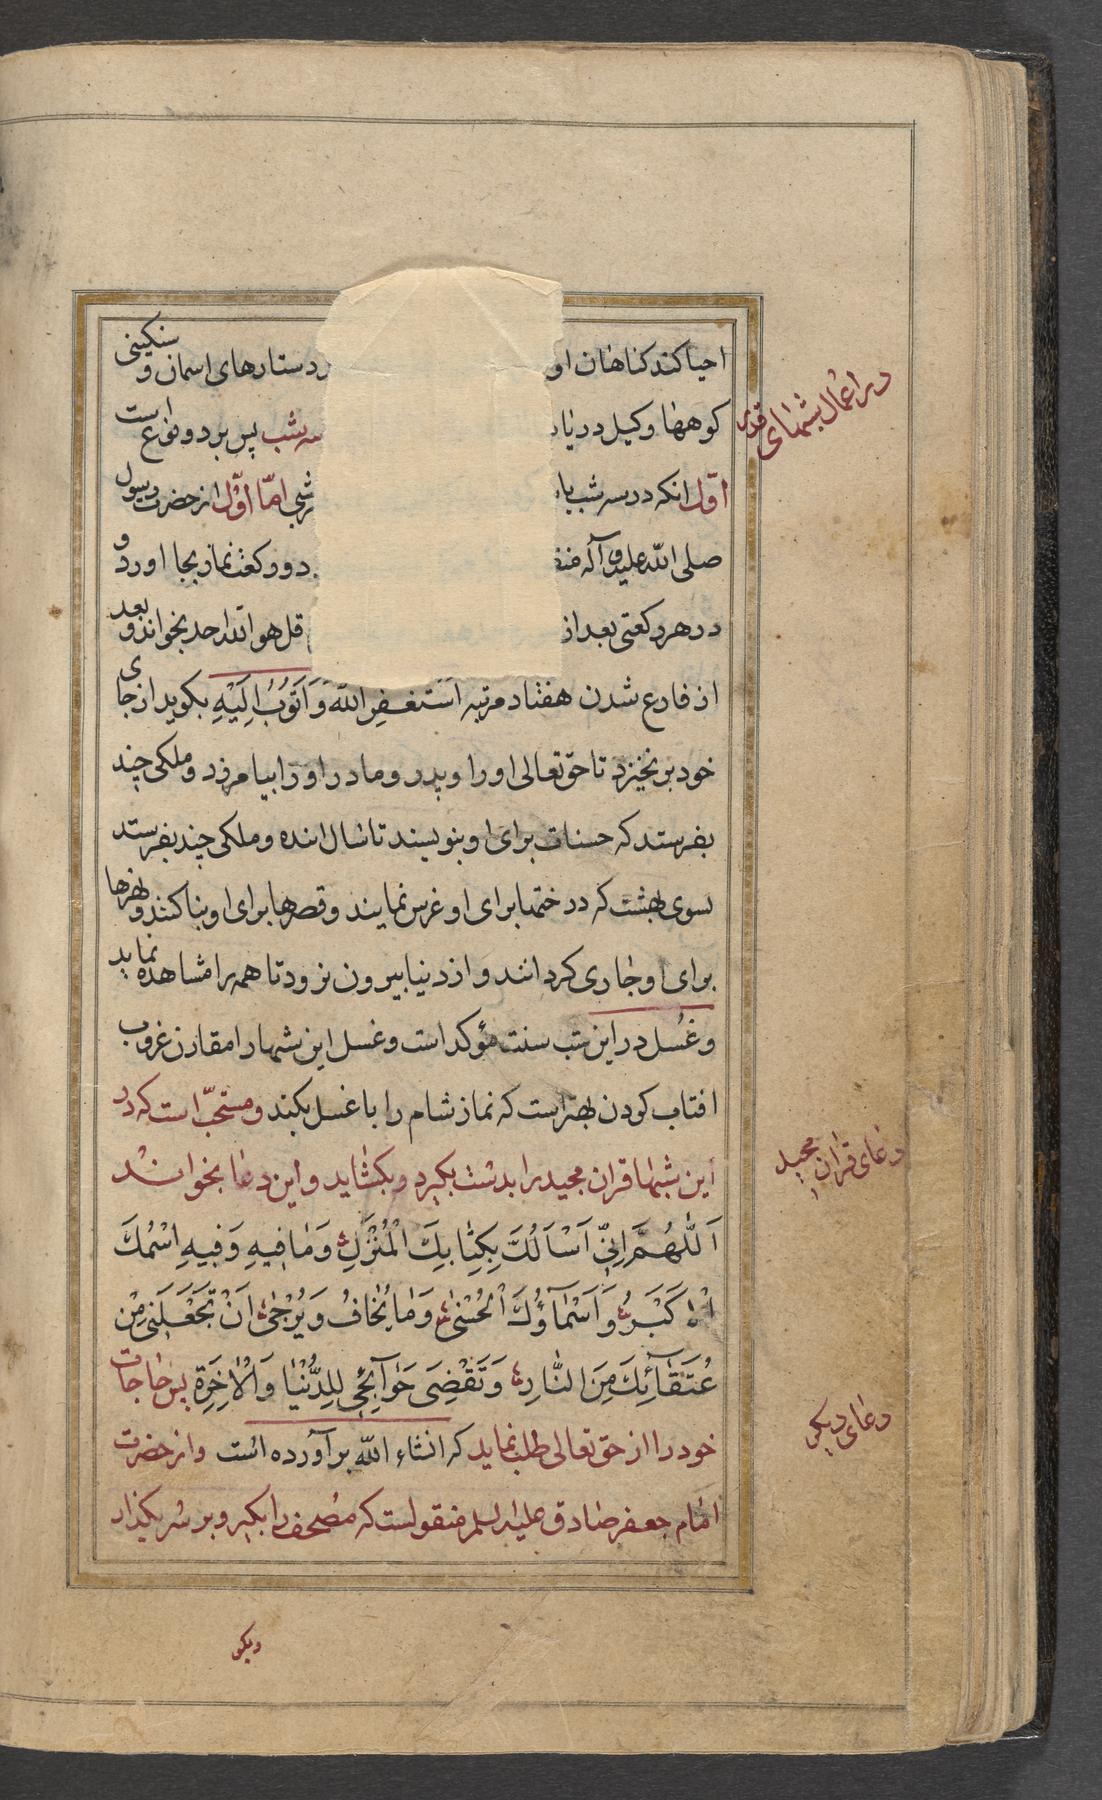 احیا کند کناهان او رد ستارهای اسمان و سنکینی
کوهها و کیل دریا سه شب پس بر دو نوع است
اول انکه در سه شب باید امّا اوّل از حضرت رسول
صلی الله علیه و آله دو رکعت نماز بجا اورد و
در هر رکعتی بعد از قل هو الله احد بخواند و بعد
از فارغ شدن هفتاد مرتبه اَسْتَغْفِرُ اللّهَ وَ اَتُوبُ اِلَیْهِ بکوید از جای
خود برنخیزد تا حق تعالی او را و پدر و مادر او را بیامرزد و ملکی چند
بفرستد که حسنات برای او بنویسند تا سال اینده و ملکی چند بفرستد
بسوی بهشت که درختها برای او غرس نمایند و قصرها برای او بنا کنند و نهرها
برای او جاری کردانند و از دنیا بیرون نرود تا همه را مشاهده نماید
و غسل در این شب سنت مؤکد است و غسل این شبها را مقارن غروب
افتاب کردن بهتر است که نماز شام را با غسل بکند و مستحبّ است که در
این شبها قران مجید را بدست بکیرد و بکشاید و این دعا بخواند
اَللّهُمَّ اِنّی اَسْاَلُکَ بِکِتابِکَ الْمُنْزَلِ وَ ما فیهِ وَ فیهِ اسْمُکَ
الْاَکْبَرُ وَ اَسْمآؤُکَ الْحُسْنی وَ ما یُخافُ وَ یُرْجی اَنْ تَجْعَلَنی مِنْ
عُتَقآئِکَ مِنَ النّارِ وَ تَقْضِیَ حَوآئِجی لِلدُّنْیا وَ الْاخِرَةِ پس حاجات
خود را از حق تعالی طلب نماید که انشاء الله برآورده است و از حضرت
امام جعفر صادق علیه السلم منقولست که مصحف را بکیر و بر سر بکذار
در اعمال شبهای قدر
دعای قران مجید
دعای دیکر
دیکر